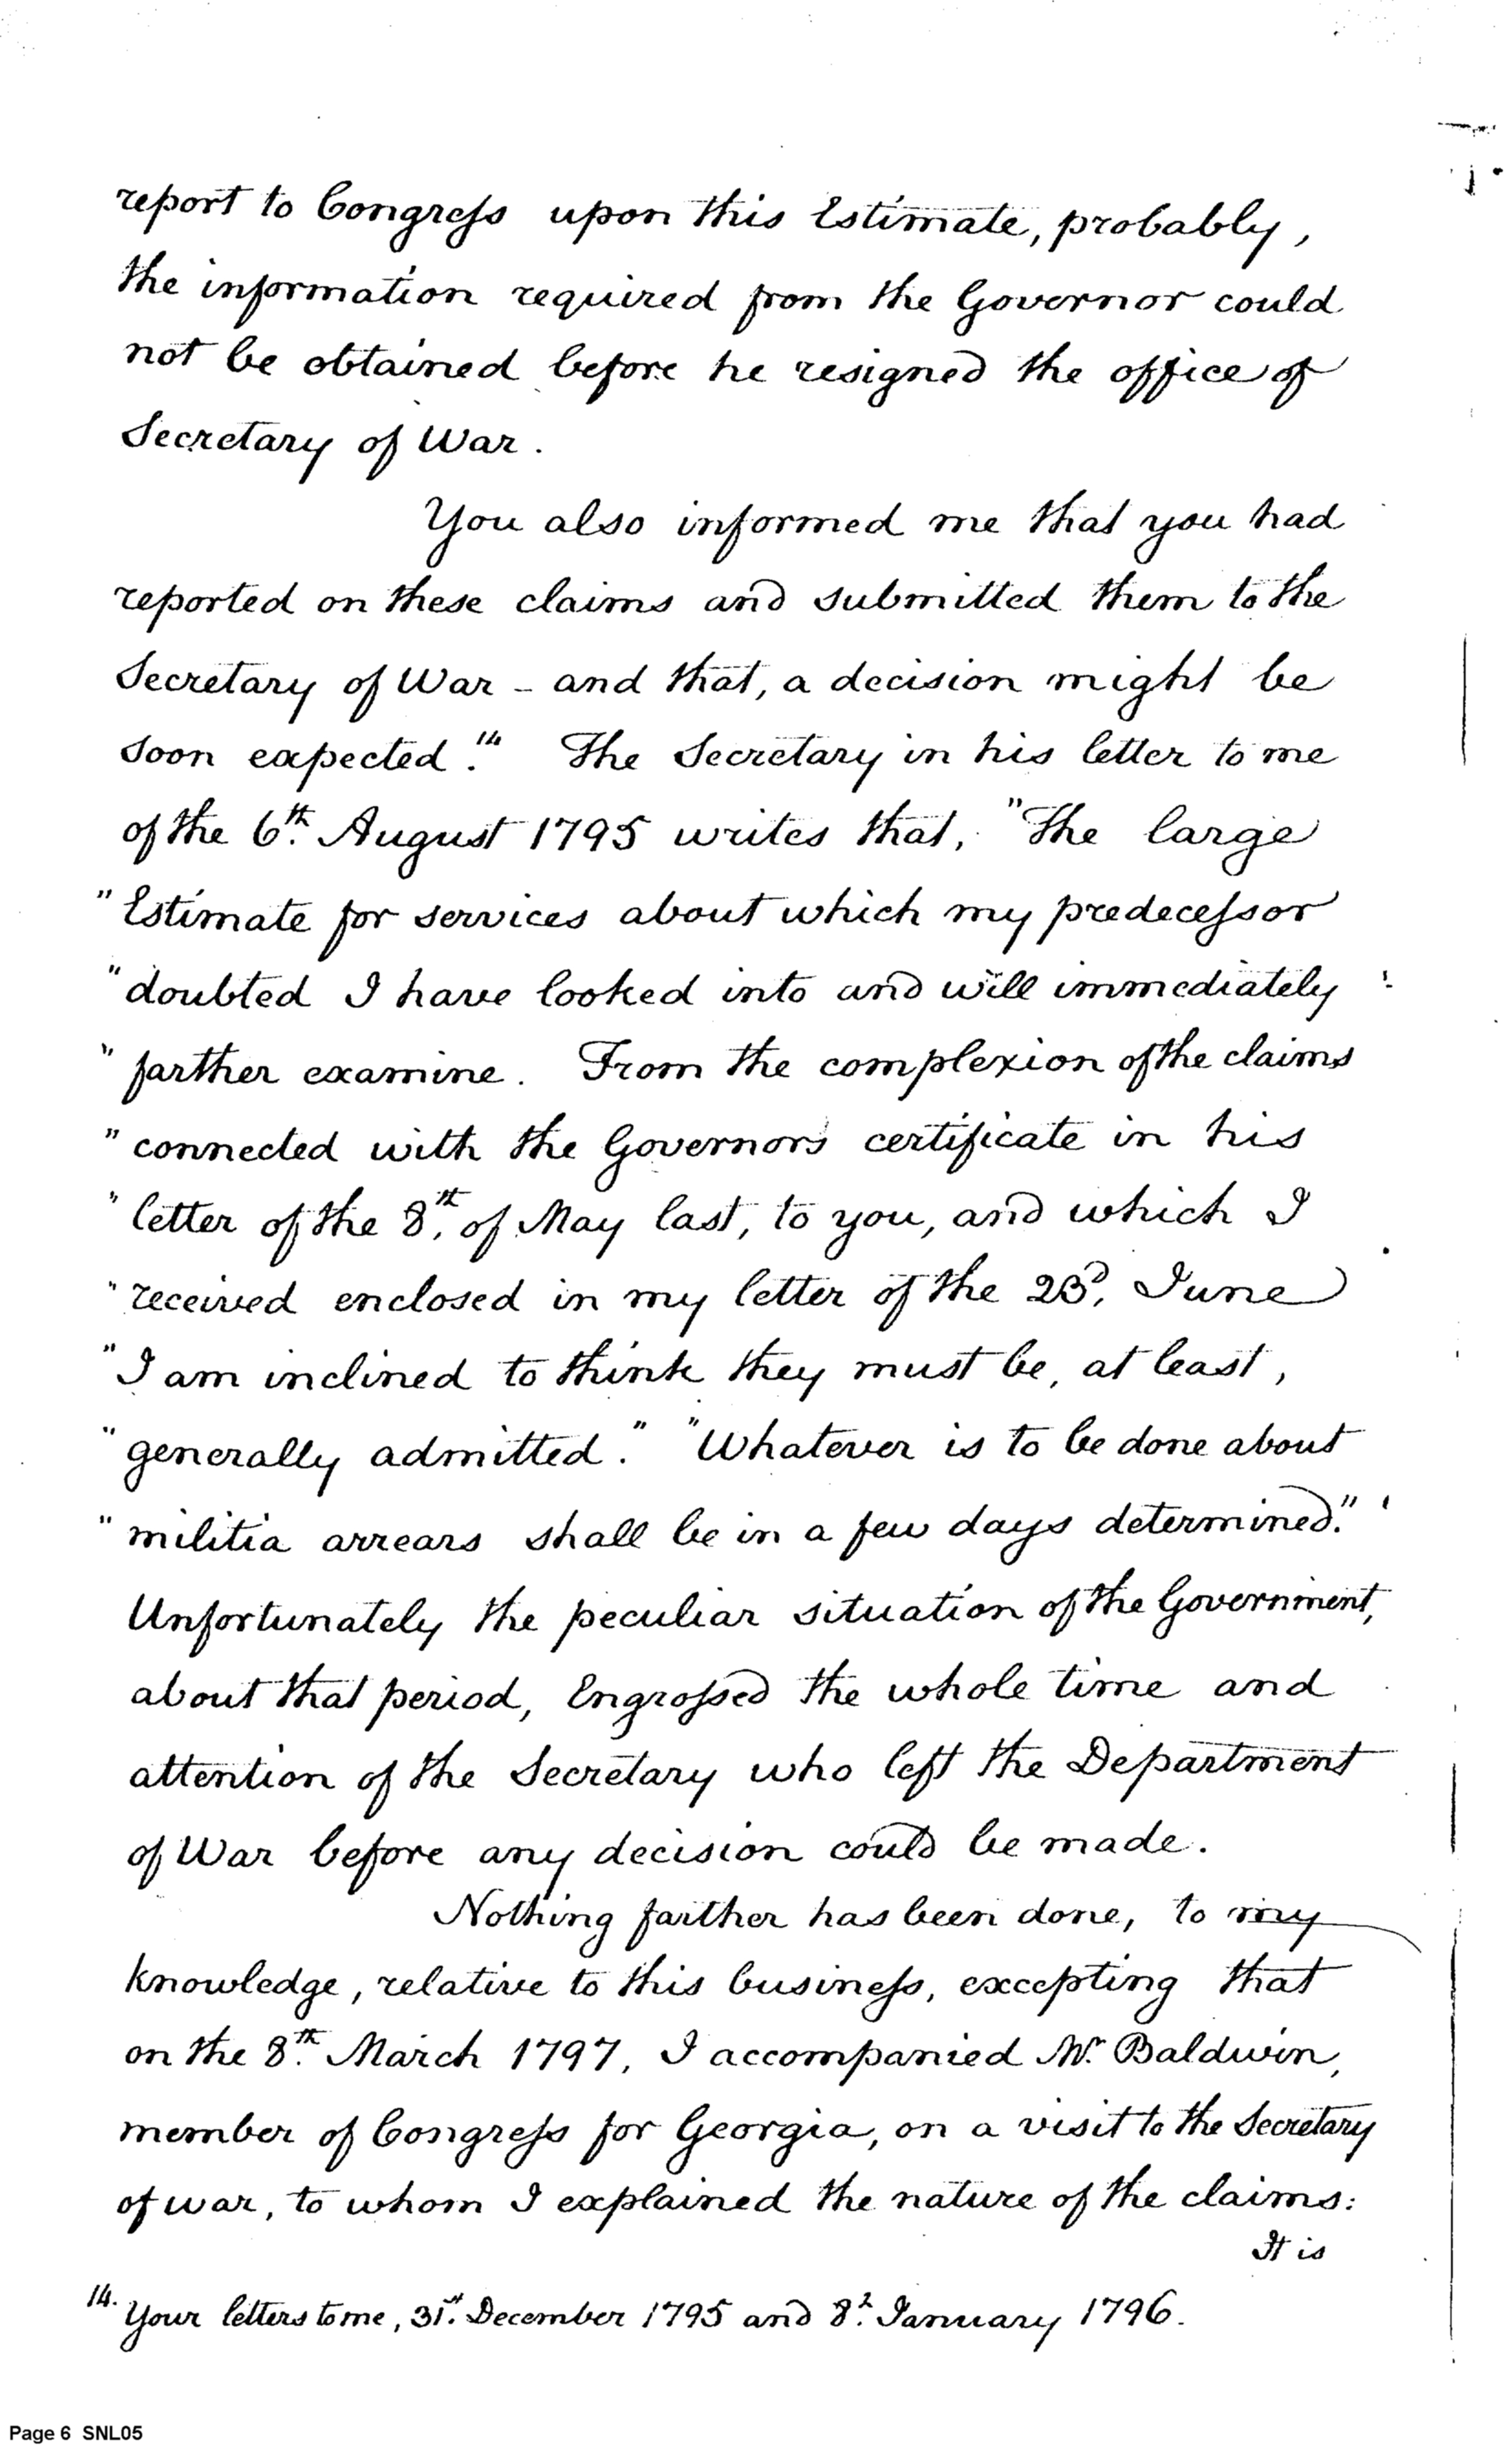 report to Congress upon this Estimate, probably,
the information required from the Governor could
not be obtained before he resigned the office of
Secretary of War.
You also informed me that you had
reported on these claims and submitted them to the
Secretary of War - and that, a decision might be
soon expected.14. The Secretary in his letter to me
of the 6th. August 1795 writes that, "The large
"Estimate for services about which my predecessor
"doubted I have looked into and will immediately
"farther examine. From the complexion of the claims
"connected with the Governors certificate in his
"letter of the 8th. of May last, to you, and which I
"received enclosed in my letter of the 23d. June
"I am inclined to think they must be, at least,
"generally admitted." "Whatever is to be done about
"militia arrears shall be in a few days determined."
Unfortunately the peculiar situation of the Government,
about that period, Engrossed the whole time and
attention of the Secretary who left the Department
of War before any decision could be made.
Nothing farther has been done, to my
knowledge, relative to this business, excepting that
on the 8th. March 1797, I accompanied Mr. Baldwin,
member of Congress for Georgia, on a visit to the Secretary
of war, to whom I explained the nature of the claims:
It is
14. Your letters to me, 31st. December 1795 and 8th. January 1796.
Page 6 SNL05